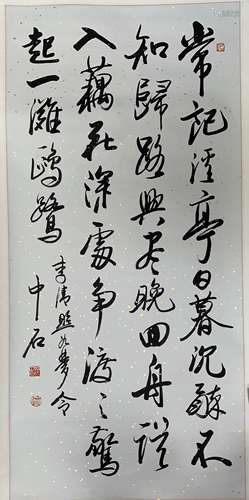 常記溪亭日暮沉醉不
知歸路興尽晚回舟誤
入藕花深處争渡々驚
起一灘鷗鷺
李清照如夢令
中石